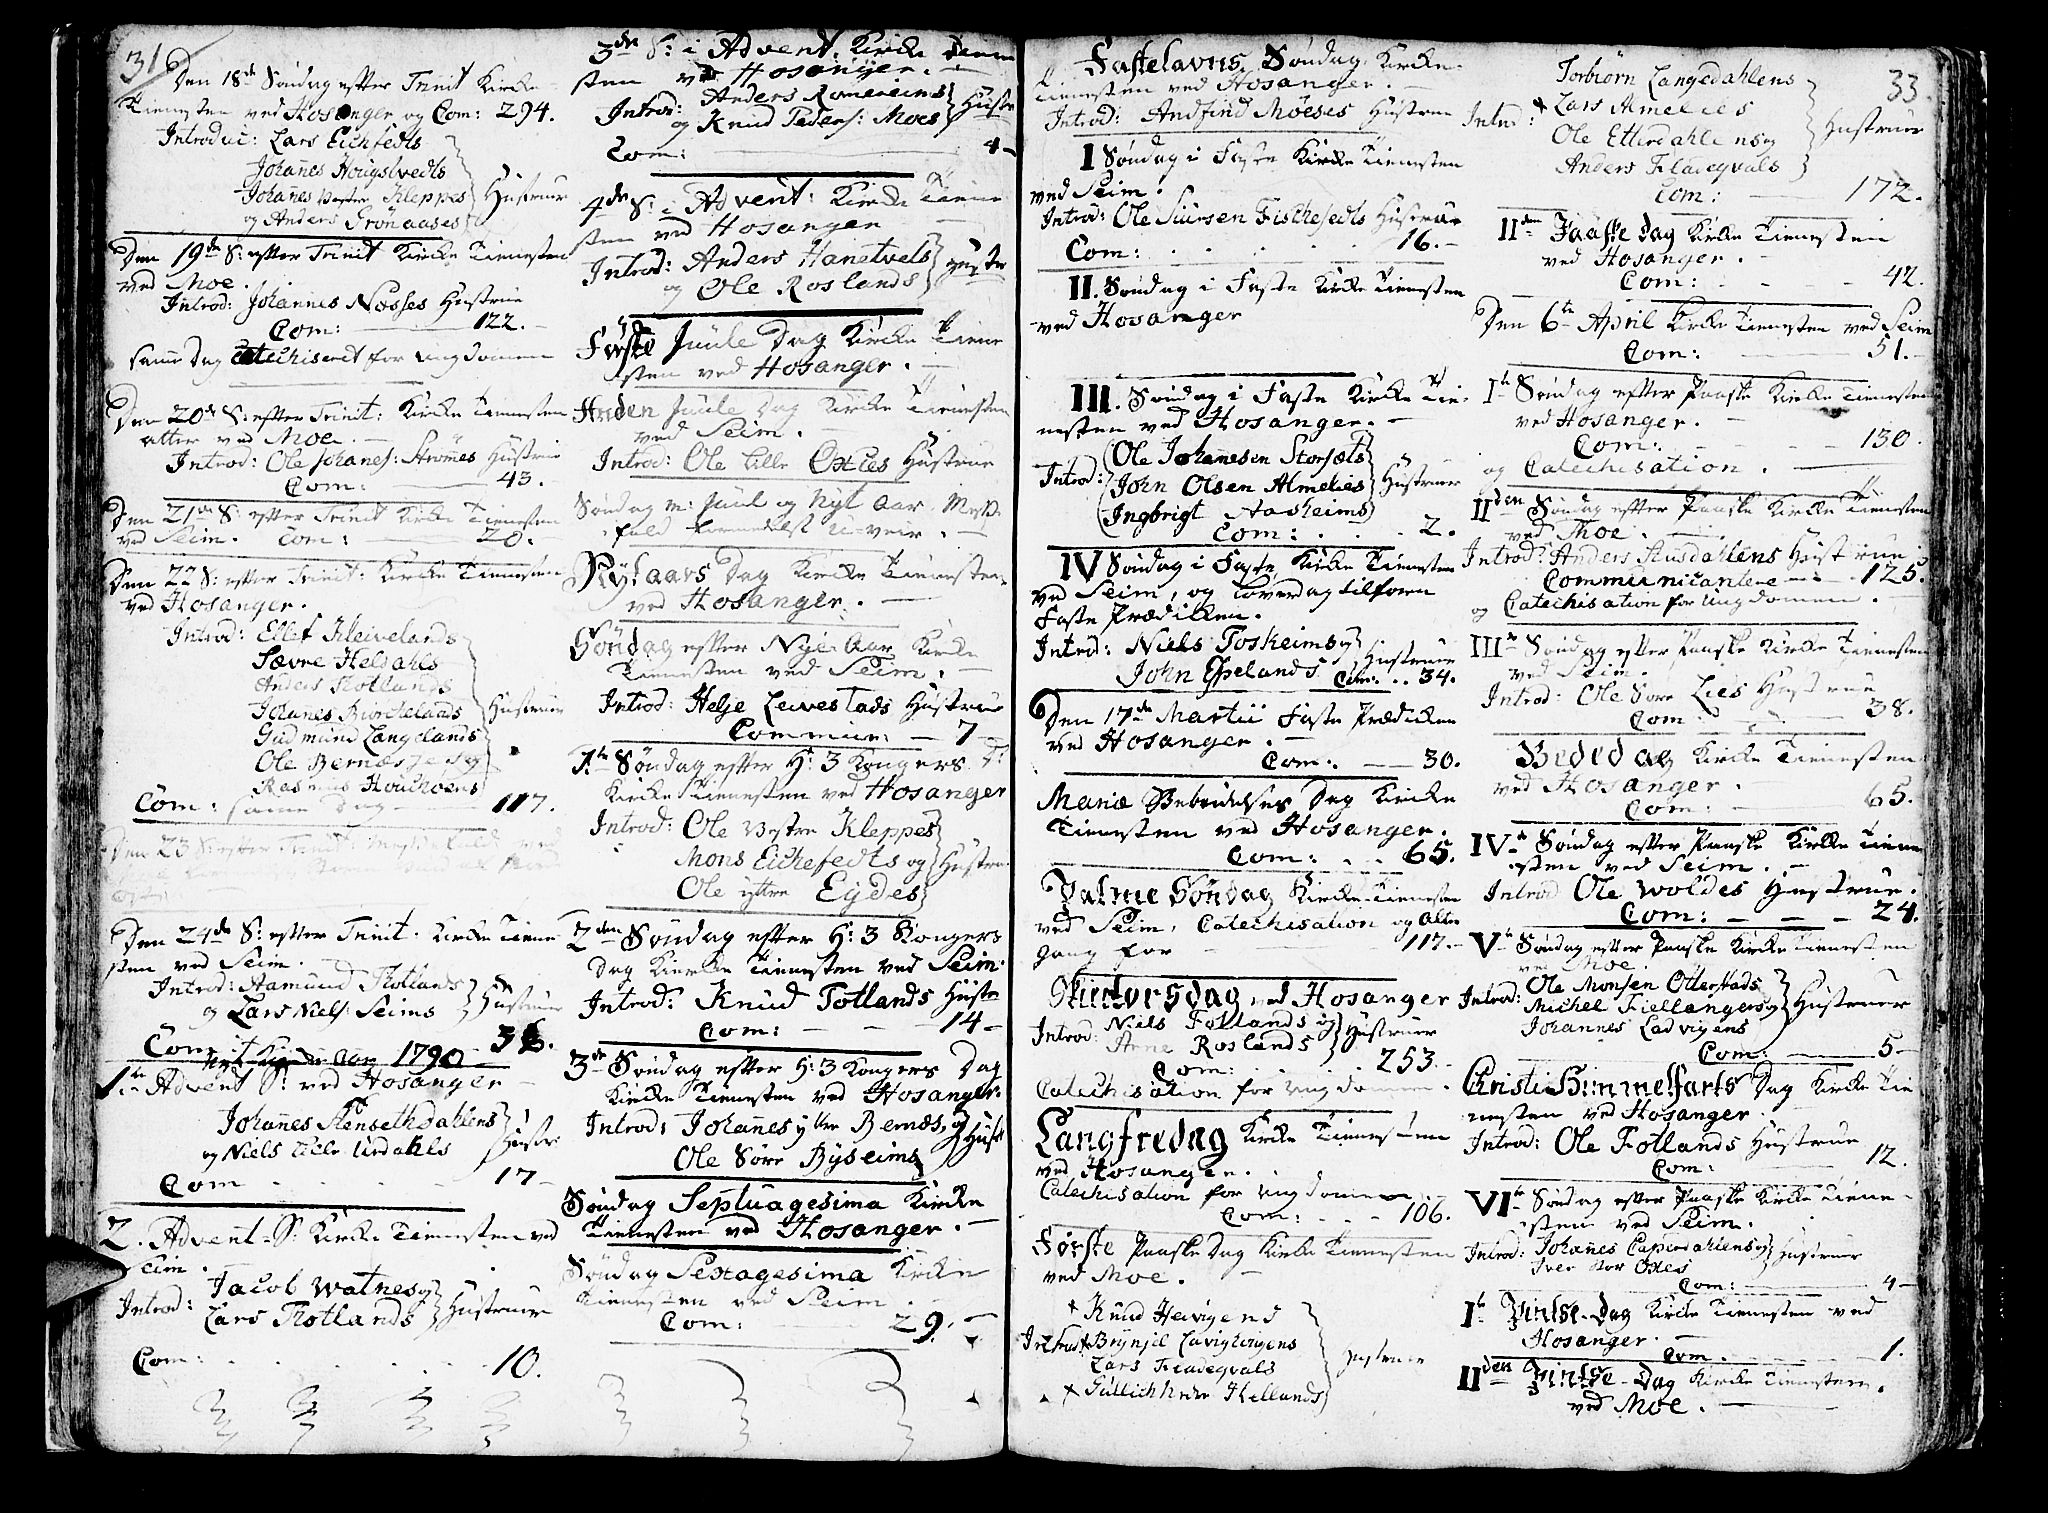 31
Den 18de Søndag efter Trinit Kircke
Tienesten ved Hosanger og Com: 294.
Introduc: Lars Eichfedts
Johañes Hougstvedts
Johañes Vestre Kleppes
og Anders Trönaases
Hustruer
Den 19de S: efter Trinit Kircke Tienesten
ved Moe.
Introd: Johannes Nosses Hustrue
Com: 122.
samme Dag Catechiseret for ungdomen
Den 20de S: efter Trinit: Kircke Tienesten
atter ved Moe.
Introd: Ole Johanes: Strömes Hustrue
Com: 43.
Den 21de S: efter Trinit Kircke Tienesten
ved Seim. Com: 20.
Den 22 S: efter Trinit: Kircke Tienesten
ved Hosanger.
Introd: Ellef Kleivelands
Sævre Heldahls
Anders Rotlands
Johanes Burckelands
Gudmund Langelands
Ole Bernæsses og
Rasmus Houckoens
Hustruer
Com: samme Dag 117.
Den 23 S: efter Trinit
Den 24de S: efter Trinit. Kircke Tiene
sten ved Seim.
Introd: Hamund Rotlands
og Lars Niels: Seims
Hustruer
Com 36.
Nyt Kircke Aar 1790
1te Advent S: ved Hosanger
Johañes Stensethdahlens
og Niels Lille Urdahls
Hustr
Com 17
2. Advent S: Kircke Tienesten ved
Seim.
Introd: Jacob Watnes og
Lars Rotlands
Hustruer
Com: 10.
3de S: i Advent. Kircke Tiene
sten ved Hosanger.
Introd: Anders Romereims
og Knud Peders: Moes
Hustr
Com: 4
4de S: i Advent: Kircke Tiene
sten ved Hosanger
Introd: Anders Hanetvets
og Ole Roslands
Hustr
Første Juule Dag Kircke Tiene
sten ved Hosanger.
Anden Juule Dag Kircke Tienesten
ved Seim.
Introd: Ole Lille Oxies Hustrue
Søndag m: Juul og Nyt Aar Mess
fald formedelst u-veir.
Nytaars Dag Kircke Tienesten
ved Hosanger.
Søndag efter Nye Aar Kircke
Tienesten ved Seim.
Introd: Helje Leivestads Hustrue
Commun: 7
1te Søndag efter H: 3 Kongers D:
Kircke Tienesten ved Hosanger
Introd: Ole Vestre Kleppes
Mons Eichefedts og
Ole ijttre Eydes
Hustru
2den Søndag efter H: 3 Kongers
Dag Kircke Tienesten ved Seim.
Introd: Knud Totlands Hustr
Com: 14
3de Søndag efter H: 3 Kongers Dag
Kircke Tienesten ved Hosanger.
Introd: Johañes yttre Bernæs og
Ole Søre Byseims
Hustr
Søndag Septuagesima Kircke
Tienesten ved Hosanger.
Søndag Sexagesima Kircke
Tienesten ved Seim.
Com: 29.
Fastelavns Søndag. Kircke
Tienesten ved Hosanger.
Introd: Andfind Moeses Hustrue
I Søndag i Faste Kircke Tienesten
ved Seim.
Introd: Ole Siursen Fischefedts Hustrue
Com: 16.
II. Søndag i Faste Kircke Tienesten
ved Hosanger
III. Søndag i Faste Kircke Tie
nesten ved Hosanger.
Introd: Ole Johannesen Storsets
John Olsen Almelies
Ingbrigt Aasheims
Hustruer
Com: 2.
IV Søndag i Faste Kircke Tienesten
ved Seim, og Løverdag tilforn
Faste Prædicken.
Introd: Niels Tosheims og
John Espelands
Hustruer
Com: 34.
Den 17de Martii Faste Prædicken
ved Hosanger.
Com: 30.
Mariæ Bebudelses Dag Kircke
Tienesten ved Hosanger.
Com: 65.
Palme Søndag Kircke Tienesten
ved Seim, Catechisation og Alter
gang for 117.
Skiertorsdag ved Hosanger
Introd: Niels Fotlands og
Arne Roslands
Hustruer
Com: 253.
Catechisation for ungdomen.
Langfredag Kircke Tienesten
ved Hosanger.
Catechisation for ungdomen
Com: 106.
Første Paaske Dag Kircke Tienesten
ved Moe.
Introd: × Knud Hevigens
× Brynjel Lavigtorgens
Lars Fladeqvals
× Gullich Nedre Hellands
Hustruer
33
Introd: Torbiörn Langedahlens
× Lars Almelies
Ole Etterdahlens og
Anders Fladeqvals
Hustruer
Com: 172.
IIden Paaske Dag Kircke Tienesten
ved Hosanger.
Com: 42.
Den 6te April Kircke Tienesten ved Seim
Com: 51.
Ite Søndag efter Paaske Kircke Tienesten
ved Hosanger.
Com: 130.
og Catechisation.
IIden Søndag efter Paaske Kircke Tienesten
ved Moe.
Introd: Anders Stusdahlens Hustrue
Communicantere 125.
og Catechisation for ungdomen.
IIIde Søndag efter Paaske Kircke Tienesten
ved Seim.
Introd: Ole Søre Lies Hustrue
Com: 38.
Bededag Kircke Tienesten
ved Hosanger.
Com: 65.
IVde Søndag efter Paaske Kircke Tiene
sten ved Seim.
Introd Ole Woldes Hustrue.
Com: 24.
Vte Søndag efter Paaske Kircke Tienesten
ved Moe.
Introd: Ole Monsen Otterstads
Michel Fiellangers og
Johannes Ladvigens
Hustruer
Com: 5
Christi Himmelfarts Dag Kircke Tie
nesten ved Hosanger
Introd: Ole Fotlands Hustrue
Com: 12.
VIte Søndag efter Paaske Kircke Tiene
sten ved Seim.
Introd: Johañes Eaperdahlens og
Iver stor Oxies
Hustruer
Com: 4
Ite Pintse-Dag Kircke Tienesten ved
Hosanger.
Com. 1.
IIden Pintse-Dag Kircke Tienesten.
ved Moe.